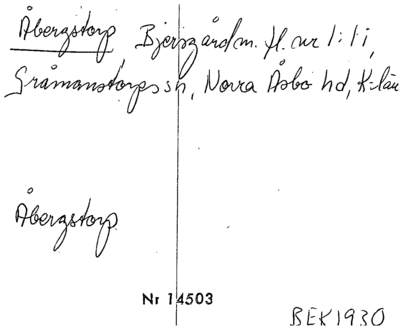 Åbergstorp Bjersgård m. fl. nr 1:1 i,
Gråmanstorps sn, Norra Åsbo hd, K-län
Åbergstorp
Nr 14503
BEK1930